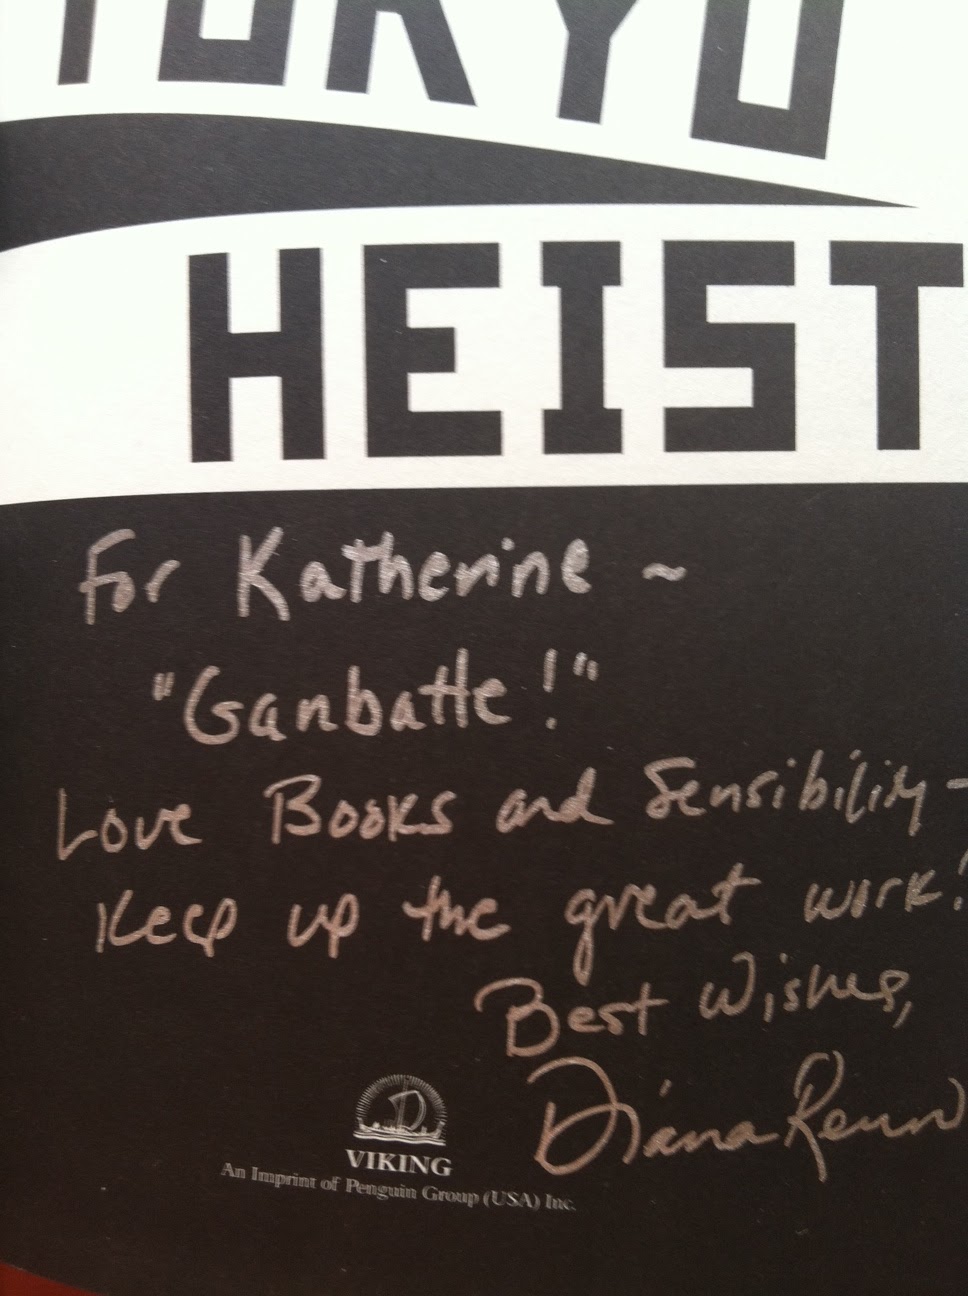 TOKYO
HEIST
For Katherine ~
"Ganbatte!"
Love Books and Sensibility -
Keep up the great work!
Best Wishes,
Diana Renn
VIKING
An Imprint of Penguin Group (USA) Inc.